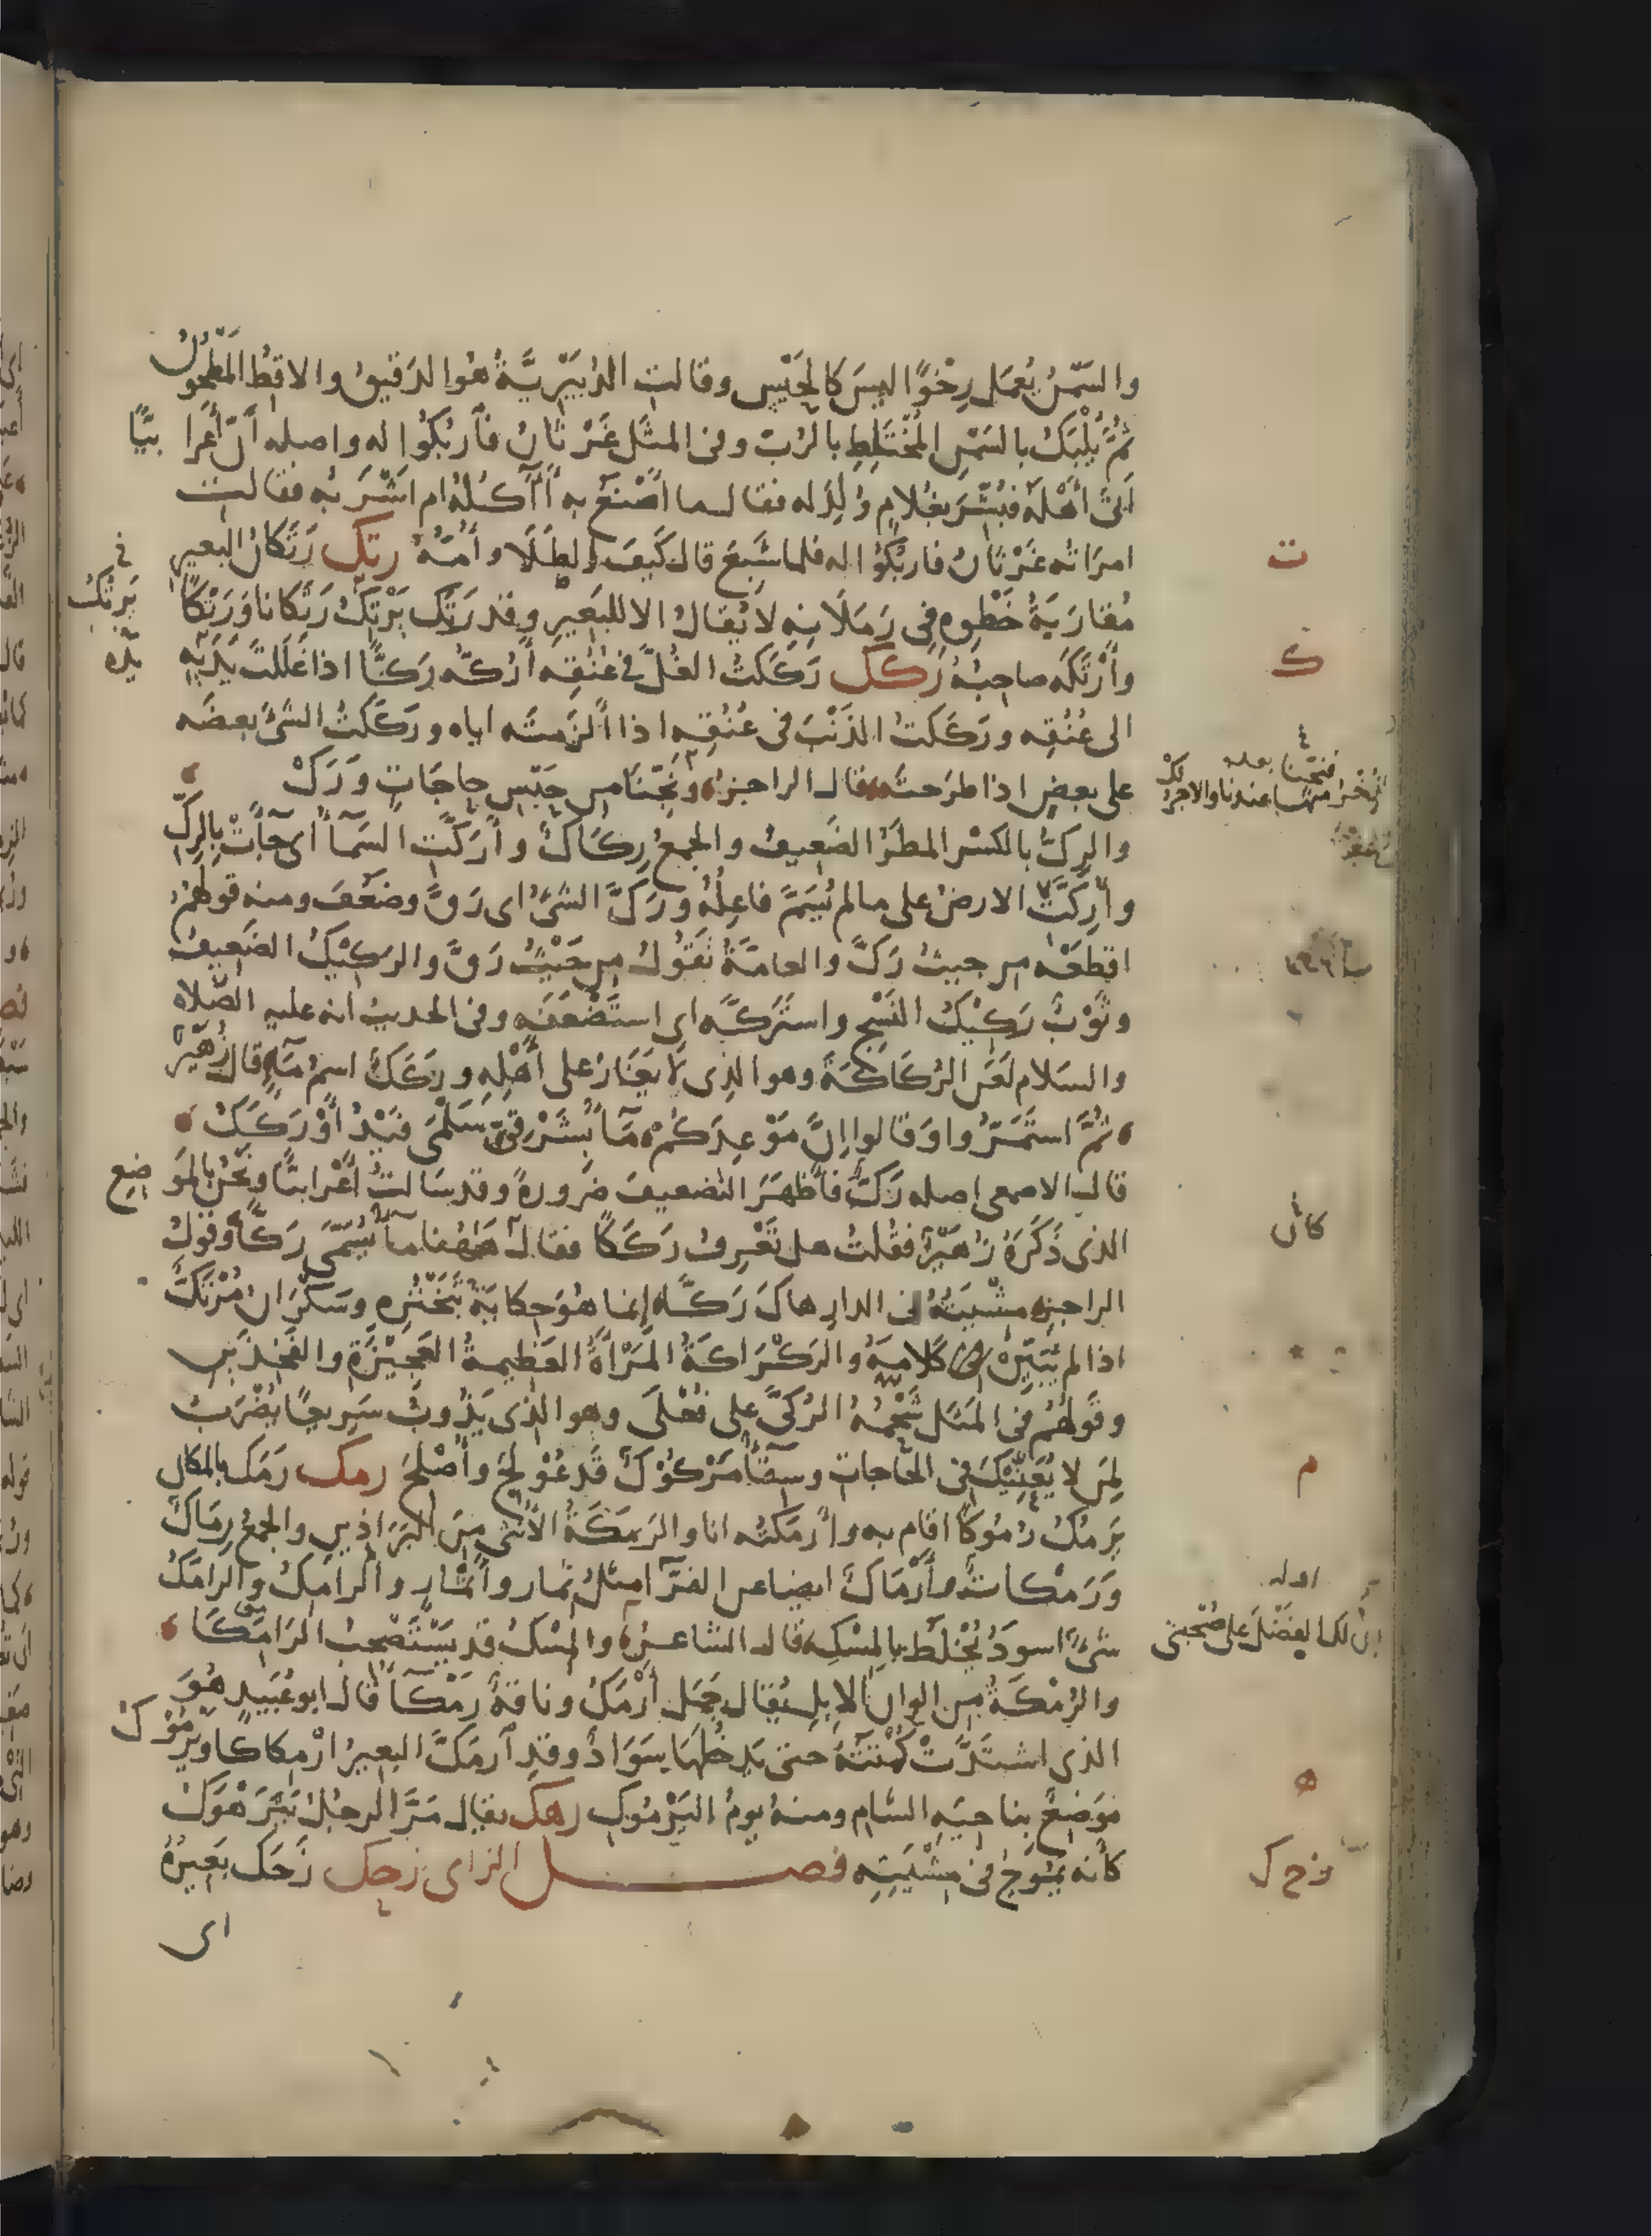 والسَّمْنُ يُعْمَل رِخْوًا ليسَ كالحَيْسِ وقالت الدُبَيْرِيَّةُ هُوَ الدَقيقُ والاقِطُ المَطْحُونُ
ثُمَّ يُلْبَكُ بالسَمْنِ المُخْتَلِطِ بالرُبّ وفى المثَل غَرْثانُ فَارْبُكُوا له واصله أنّ أعْرابيًّا
اَتَى أَهْلَهُ فبُشِّرَ بغُلامٍ وُلِدَ له فقال ما أَصْنَعُ بهِ أَآكُلُهُ ام اَشْرَبُه فقالت
امرَاتُه غَرْثانُ فاربُكُوا له فلما شَبِعَ قال كَيفَ الطَلَا وأُمّهُ رتك رَتَكانُ البَعيرِ
مُقارَبَةُ خَطْوِه فِى رَمَلَانِهِ لا يُقالُ الا للبَعيرِ وقد رَتَك يَرْتِكُ رَتَكانا وَرَتْكًا
وأَرْتَكَه صاحِبُهُ ركك رَكَكتُ الغُلَّ فى عُنُقِه أَرُكّه رَكًّا اذا غَلَلتَ يَدَيْهِ
الى عُنُقِه ورَكَكتُ الذَنْبَ فى عُنُقِه اذا أَلْزَمتَه اياه ورَكَكتُ الشَّىْ بعضَه
على بعضٍ اذا طرَحتَه قال الراجز ونَجِّنَا مِن حَبْسِ حاجَاتٍ وَرَكْ
والرِكُّ بالكَسْر المطَرُ الضَعِيفُ والجمعُ رِكَاكٌ وأَرَكَّتِ السَمآءُ اى جآءَتْ بِالرِكِّ
وأُرِكَّتِ الارضُ على ما لم يُسَمَّ فاعِلُهُ ورَكَّ الشَىْءُ اى رَقَّ وضعُفَ ومنه قولهُمْ
اقطَعْه مِن حيثُ رَكَّ والعامّةُ تَقُولُ مِن حَيْثُ رَقَّ والرَكِيْكُ الضَعِيفُ
وثَوْبٌ رَكِيْكُ النَسْجِ واستَرَكَّه اى استَضْعَفَه وفى الحديث انه عليه الصّلاه
والسَلام لعَن الرُكَاكَةَ وهو الذى لَا يَغَارُ على أَهْلِهِ ورَكَكٌ اسمُ مَآءٍ قال زُهَيْرٌ
ثُمَّ استَمَرُّوا وَقالوا إِنَّ مَوْعِدَكُمْ مَآءٌ بشَرْقِىِّ سَلْمَى فَيْدُ أَوْ رَكَكُ
قال الاصمعى اصله رَكٌّ فأَظهَرَ التضعيفَ ضَرورةً وقد سَالتُ أَعْرابيًّا ونَحْنُ بالمَوضِع
الذى ذَكَرَهُ زُهَيْرٌ فقُلتُ هل تَعْرِفُ رَكَكًا فقالَ هَاهُنا مآءٌ يُسَمَّى رَكًّا وقولُ
الراجز مشْيَتُهُ فى الدارِ هاكَ رَكَّ إنما هُوَ حِكايَةُ تَبَخْتُرِهِ وسَكْرَانُ مُرْتَكٌّ
اذا لم يُبَيِّنْ كَلامَهُ والرَكْرَاكَةُ المَرْأَةُ العَظِيمةُ العَجِيْزَةِ والفَخِذَيْنِ
وقَولهُمْ فى المَثَل شَحْمَةُ الرُكَّى على فُعْلَى وهو الذى يَذُوبُ سَرِيعًا يُضْرَبُ
لِمَن لا يُعِيْنُكَ فى الحاجاتِ وسِقآءٌ مَرْكُوْكٌ قَد عُوْلِجَ وأُصْلِحَ رمك رَمَك بالمكان
يَرمُكُ رُمُوكًا اقام به وأَرمَكتُه انا والرَمَكَةُ الأُنثَى مِنَ البَرَاذِينِ والجمعُ رِمَاكٌ
وَرَمَكاتٌ وأَرْمَاكٌ ايضا عن الفَرّآء مثلُ ثِمار وأَثْمارٍ والرامِكُ والرامَكُ
شىْءٌ اسودُ يُخْلَطُ بِالمِسْكِ قال الشاعر والمِسْكُ قد يَسْتَصْحِبُ الرَامِكَا
والرُمْكَةُ مِن الوانِ الاِبِلِ يُقال جَمَل أَرْمَكُ وناقةٌ رَمْكَآءُ قال ابو عُبَيد هُوَ
الذى اشتَدَّتْ كُمْتَتُهُ حتى يَدخُلَها سَوَادٌ وقد اَرمَكَّ البعِيرُ ارْمِكاكًا ويَرمُوْكُ
مَوضِعٌ بِناحِيَهِ الشام ومنهُ يومُ اليَرْمُوكِ رهك يقال مَرَّ الرجُلُ يَتَرَهْوَكُ
كأنه يَمُوجُ فى مِشْيَتِهِ فصل الزاى زحك زَحَك بَعِيرُهُ
اى
ت
فى
يَرتُكُ
ك
يده
بعده
م
كان
اوله
إن لك الفَضْلَ على صُحْبَتى
ه
ز ح ك